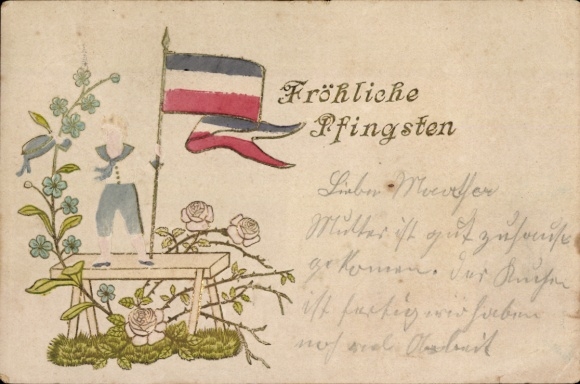 Fröhliche
Pfingsten
Lieber
Mutter ist gut zuhause
gekomen. Der Kuchen
ist fertig wir haben
noch viel Arbeit